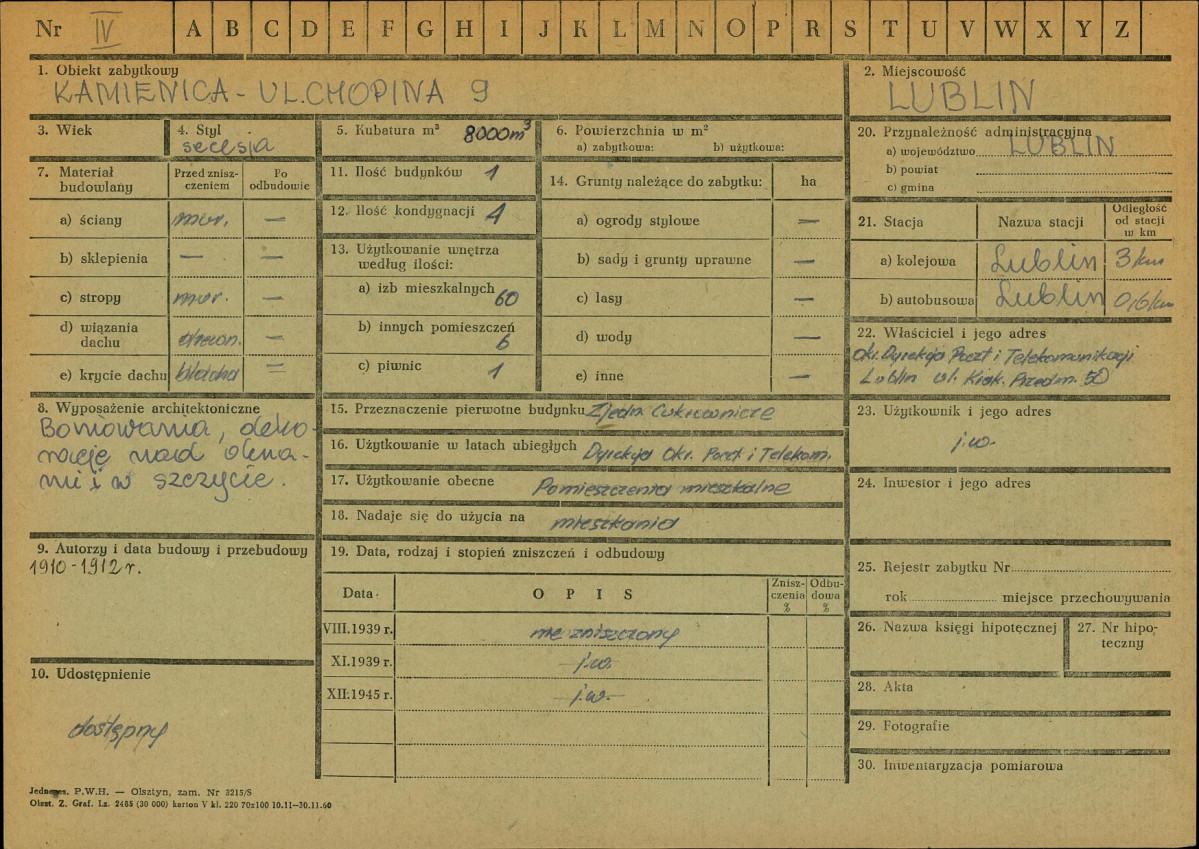 Nr IV A B C D E F G H I J K L M N O P R S T U V W X Y Z
1. Obiekt zabytkowy
KAMIENICA - UL. CHOPINA 9
2. Miejscowość
LUBLIN
3. Wiek
4. Styl
secesja
5. Kubatura m³ 8000 m³
6. Powierzchnia w m²
a) zabytkowa: b) użytkowa:
7. Materiał budowlany
Przed zniszczeniem
Po odbudowie
a) ściany mur. —
b) sklepienia — —
c) stropy mur. —
d) wiązania dachu drewn. —
e) krycie dachu blacha =
8. Wyposażenie architektoniczne
Boniowania, deko-
racje nad okna-
mi i w szczycie.
9. Autorzy i data budowy i przebudowy
1910-1912 r.
10. Udostępnienie
dostępny
11. Ilość budynków 1
12. Ilość kondygnacji 4
13. Użytkowanie wnętrza
według ilości:
a) izb mieszkalnych 60
b) innych pomieszczeń 6
c) piwnic 1
14. Grunty należące do zabytku: ha
a) ogrody stylowe —
b) sady i grunty uprawne —
c) lasy —
d) wody —
e) inne —
15. Przeznaczenie pierwotne budynku Zjedn. Cukrownicze
16. Użytkowanie w latach ubiegłych Dyrekcja Okr. Poczt i Telekom.
17. Użytkowanie obecne Pomieszczenia mieszkalne
18. Nadaje się do użycia na mieszkania
19. Data, rodzaj i stopień zniszczeń i odbudowy
Data OPIS Zniszczenia % Odbudowa %
VIII.1939 r. nie zniszczony
XI.1939 r. -j.w.-
XII.1945 r. -j.w.-
20. Przynależność administracyjna
a) województwo LUBLIN
b) powiat
c) gmina
21. Stacja Nazwa stacji Odległość od stacji w km
a) kolejowa Lublin 3 km
b) autobusowa Lublin 0,6 km
22. Właściciel i jego adres
Okr. Dyrekcja Poczt i Telekomunikacji
Lublin ul. Krak. Przedm. 50
23. Użytkownik i jego adres
j.w.
24. Inwestor i jego adres
25. Rejestr zabytku Nr
rok miejsce przechowywania
26. Nazwa księgi hipotecznej
27. Nr hipo-
teczny
28. Akta
29. Fotografie
30. Inwentaryzacja pomiarowa
P.W.H. — Olsztyn, zam. Nr 3215/S
Olszt. Z. Graf. Lz. 2465 (30 000) karton V kl. 220 70x100 10.11—30.11.60